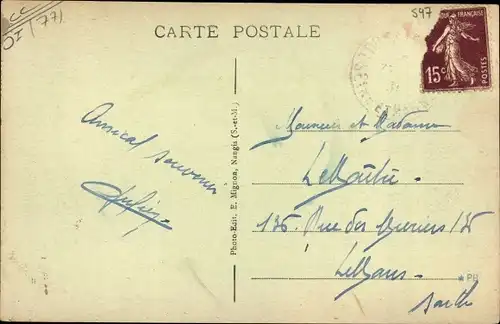 CC
OI (77)
CARTE POSTALE
597
15c
POSTES
Amical souvenir
Photo-Edit. E. Mignon, Nangis (S.-et-M.)
Monsieur et Madame
LeMaître
135 Rue des Meriers 135
Le Mans
Sarthe
*PH